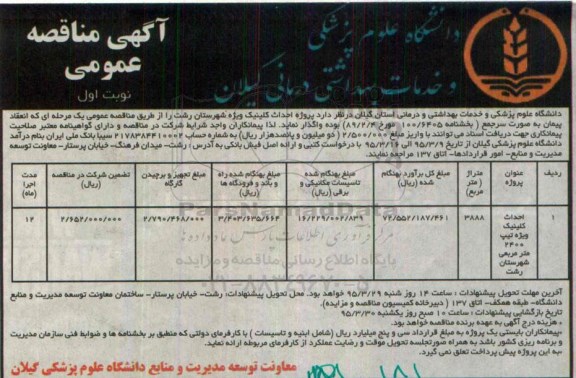 دانشگاه علوم پزشکی
و خدمات بهداشتی درمانی گیلان
آگهی مناقصه
عمومی
نوبت اول
دانشگاه علوم پزشکی و خدمات بهداشتی و درمانی استان گیلان درنظر دارد پروژه احداث کلینیک ویژه شهرستان رشت را از طریق مناقصه عمومی یک مرحله ای که انعقاد
پیمان به صورت سرجمع ( بخشنامه ۱۰۰/۶۴۰۵ مورخ ۸۹/۲/۴) بوده واگذار نماید. لذا پیمانکاران واجد شرایط شرکت در مناقصه و دارای گواهینامه معتبر صلاحیت
پیمانکاری جهت دریافت اسناد می توانند با واریز مبلغ ۲/۵۰۰/۰۰۰ ( دو میلیون و پانصدهزار ریال) به شماره حساب ۲۱۷۸۳۸۴۴۱۰۰۰۲ سیبا بانک ملی ایران بنام درآمد
دانشگاه علوم پزشکی گیلان از تاریخ ۹۵/۳/۹ الی ۹۵/۳/۱۶ با درخواست کتبی و ارائه اصل فیش بانکی به آدرس : رشت- میدان فرهنگ- خیابان پرستار- معاونت توسعه
مدیریت و منابع- امور قراردادها- اتاق ۱۳۷ مراجعه نمایند.
ردیف
عنوان پروژه
متراژ ( متر مربع)
مبلغ کل برآورد بهنگام شده (ریال)
مبلغ بهنگام شده تاسیسات مکانیکی و برقی (ریال)
مبلغ بهنگام شده راه و باند و فرودگاه ها (ریال)
مبلغ تجهیز و برچیدن کارگاه
تضمین شرکت در مناقصه (ریال)
مدت اجرا (ماه)
۱
احداث کلینیک ویژه تیپ ۲۴۰۰ متر مربعی شهرستان رشت
۳۸۸۸
۷۲/۵۵۲/۱۸۷/۴۶۱
۱۶/۲۲۹/۰۰۲/۸۳۹
۳/۴۰۳/۶۳۵/۶۶۲
۲/۷۹۰/۴۶۸/۰۰۰
۲/۶۵۲/۰۰۰/۰۰۰
۱۲
آخرین مهلت تحویل پیشنهادات : ساعت ۱۴ روز شنبه ۹۵/۳/۲۹ خواهد بود. محل تحویل پیشنهادات: رشت- خیابان پرستار- ساختمان معاونت توسعه مدیریت و منابع
دانشگاه- طبقه همکف- اتاق ۱۳۷ ( دبیرخانه کمیسیون مناقصه و مزایده).
تاریخ بازگشایی پیشنهادات : ساعت ۱۰ صبح روز یکشنبه ۹۵/۳/۳۰
- هزینه درج آگهی به عهده برنده مناقصه خواهد بود.
-پیمانکاران بایستی یک پروژه به مبلغ قرارداد سی و پنج میلیارد ریال (شامل ابنیه و تاسیسات ) با کارفرمای دولتی که منطبق بر بخشنامه ها و ضوابط فنی سازمان مدیریت
و برنامه ریزی کشور باشد به همراه صورتجلسه تحویل موقت و رضایت عملکرد از کارفرمای مربوطه ارائه نماید.
-به این پروژه پیش پرداخت تعلق نمی گیرد.
معاونت توسعه مدیریت و منابع دانشگاه علوم پزشکی گیلان
پایگاه اطلاع رسانی مناقصه و مزایده